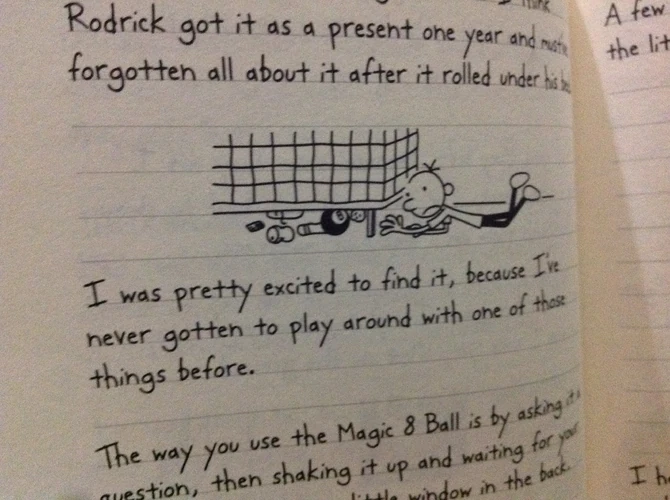 Rodrick got it as a present one year and must've
forgotten all about it after it rolled under his bed.
8
I was pretty excited to find it, because I've
never gotten to play around with one of those
things before.
The way you use the Magic 8 Ball is by asking it a
question, then shaking it up and waiting for your
little window in the back.
A few
the lit
I h